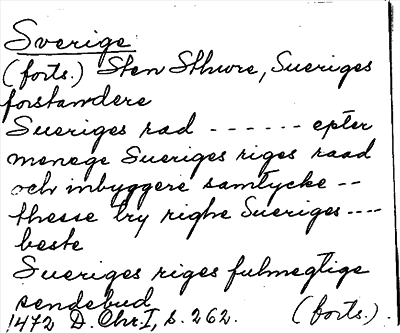 Sverige
(forts.) Sten Sthure, Sueriges
forstandere
Sueriges rad ------ epter
menege Sueriges riges raad
och inbyggere samtycke --
thesse try righe Sueriges ----
beste
Sueriges riges fulmegtige
sendebud
1472 D. Chr I, s. 262. (forts.)